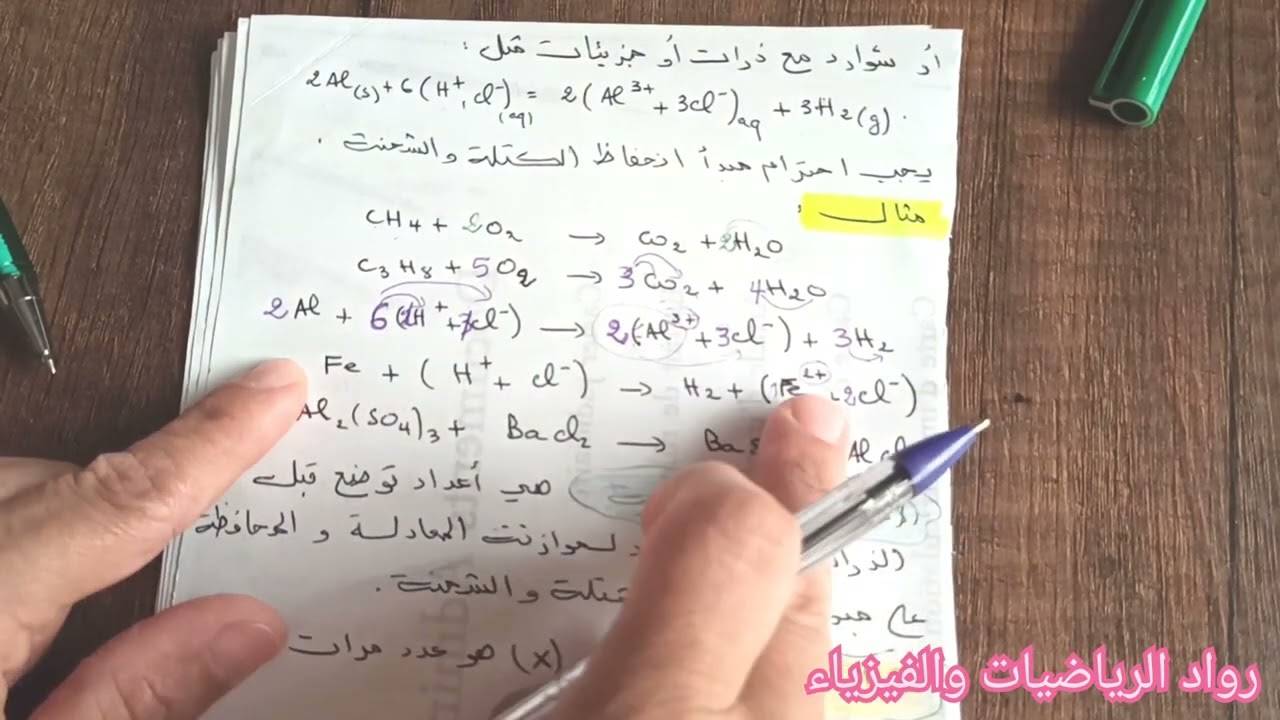 أو شوارد مع ذرات أو جزيئات مثل :
2Al(s) + 6(H⁺, Cl⁻)(aq) = 2(Al³⁺ + 3Cl⁻)aq + 3H₂(g) .
يجب احترام مبدأ انحفاظ الكتلة والشحنة .
مثال :
CH₄ + 2O₂ → CO₂ + 2H₂O
C₃H₈ + 5O₂ → 3CO₂ + 4H₂O
2Al + 6(H⁺ + Cl⁻) → 2(Al³⁺ + 3Cl⁻) + 3H₂
Fe + (H⁺ + Cl⁻) → H₂ + (Fe²⁺ + 2Cl⁻)
Al₂(SO₄)₃ + BaCl₂ → Ba
هي أعداد توضع قبل
لموازنة المعادلة و المحافظة
والشحنة .
(x) هو عدد مرات
رواد الرياضيات والفيزياء